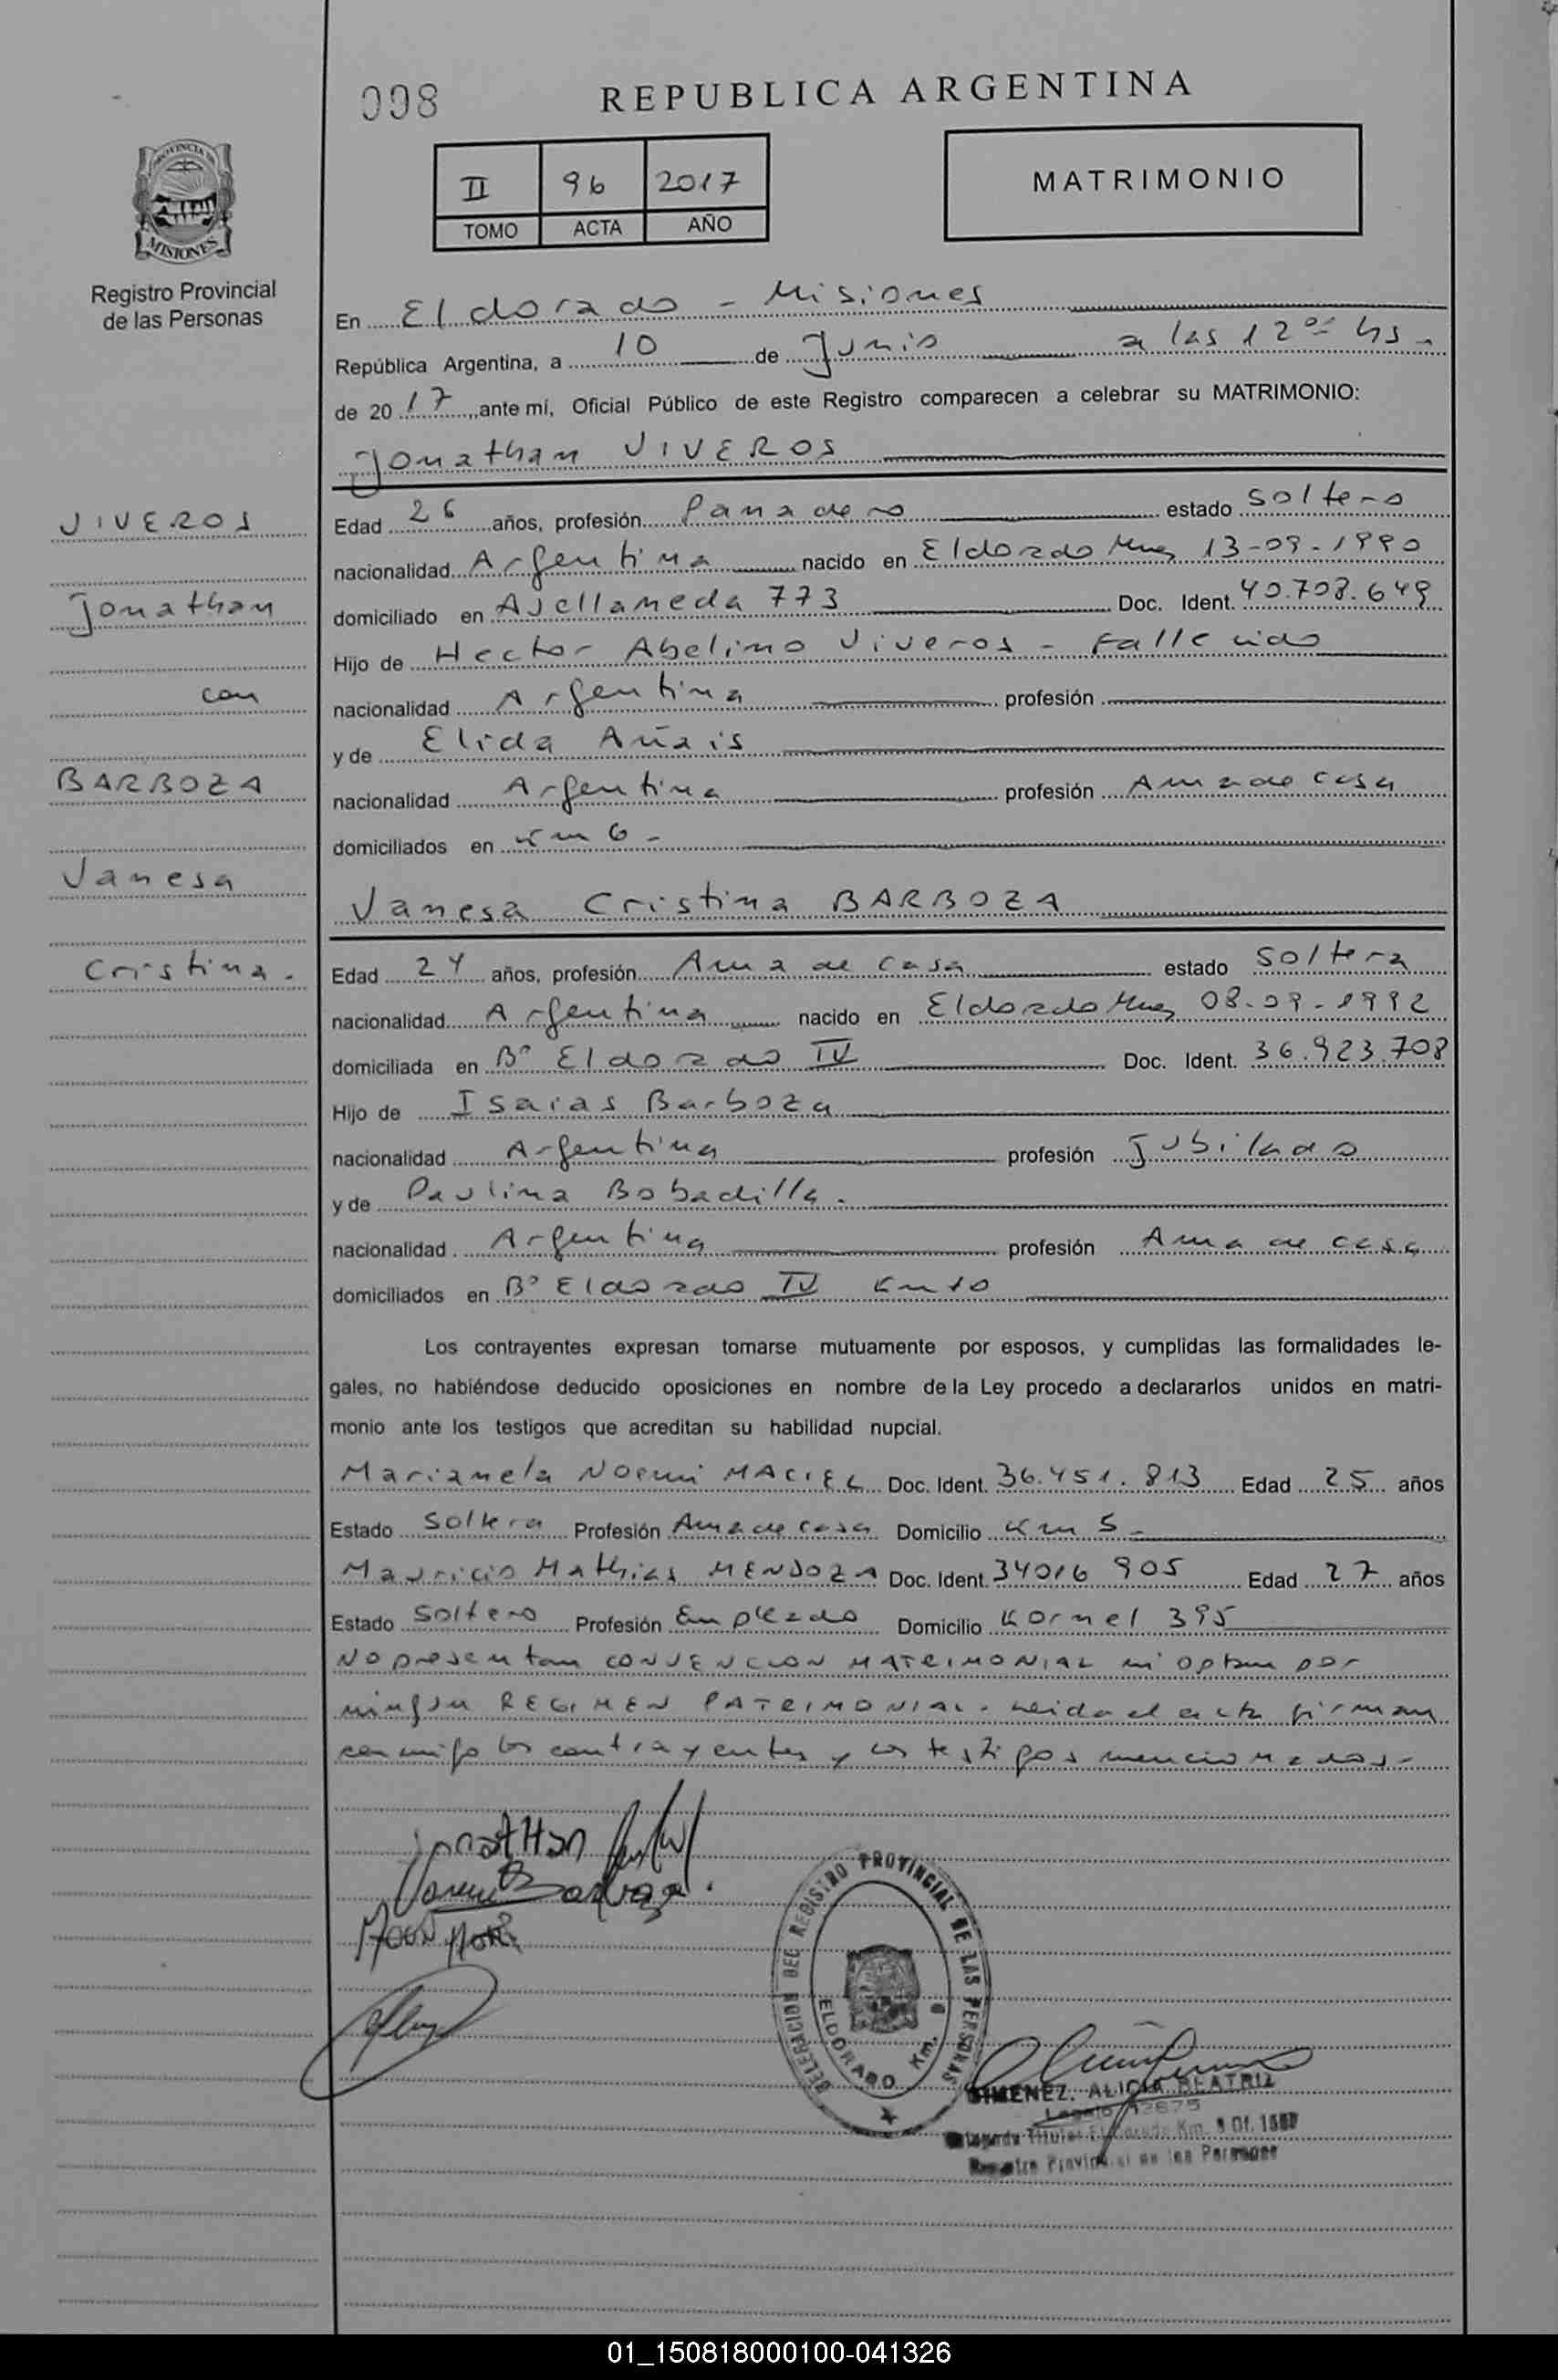 098
REPUBLICA ARGENTINA
PROVINCIA DE
MISIONES
Registro Provincial
de las Personas
II 96 2017
TOMO ACTA AÑO
MATRIMONIO
En Eldorado - Misiones
República Argentina, a 10 de Junio a las 12 00 hs -
de 2017, ante mí, Oficial Público de este Registro comparecen a celebrar su MATRIMONIO:
Jonathan VIVEROS
VIVEROS
Jonathan
con
BARBOZA
Vanesa
Cristina.
Edad 26 años, profesión Panadero estado soltero
nacionalidad Argentina nacido en Eldorado Mnes 13-09-1990
domiciliado en Avellaneda 773 Doc. Ident. 40.708.649
Hijo de Hector Abelino Viveros - Fallecido
nacionalidad Argentina profesión
y de Elida Añais
nacionalidad Argentina profesión Ama de casa
domiciliados en Km 6 -
Vanesa Cristina BARBOZA
Edad 24 años, profesión Ama de casa estado soltera
nacionalidad Argentina nacido en Eldorado Mnes 08-09-1992
domiciliada en Bº Eldorado IV Doc. Ident. 36.923.708
Hijo de Isaias Barboza
nacionalidad Argentina profesión Jubilado
y de Paulina Bobadilla.
nacionalidad Argentina profesión Ama de casa
domiciliados en Bº Eldorado IV Km 10
Los contrayentes expresan tomarse mutuamente por esposos, y cumplidas las formalidades le-
gales, no habiéndose deducido oposiciones en nombre de la Ley procedo a declararlos unidos en matri-
monio ante los testigos que acreditan su habilidad nupcial.
Marianela Noemi MACIEL Doc. Ident. 36.451.813 Edad 25 años
Estado Soltera Profesión Ama de casa Domicilio Km 5 -
Mauricio Mathias MENDOZA Doc. Ident. 34016 905 Edad 27 años
Estado Soltero Profesión Empleado Domicilio Kornel 395
No presentan CONVENCION MATRIMONIAL ni optan por
ningun REGIMEN PATRIMONIAL - Leida el acta firman
conmigo los contrayentes y los testigos mencionados -
Jonathan
Barboza
DELEGACION DEL REGISTRO PROVINCIAL DE LAS PERSONAS
ELDORADO Km. 6
GIMENEZ. ALICIA BEATRIZ
Legajo
Titular Eldorado Km.
Registro Provincial de las Personas
01_150818000100-041326